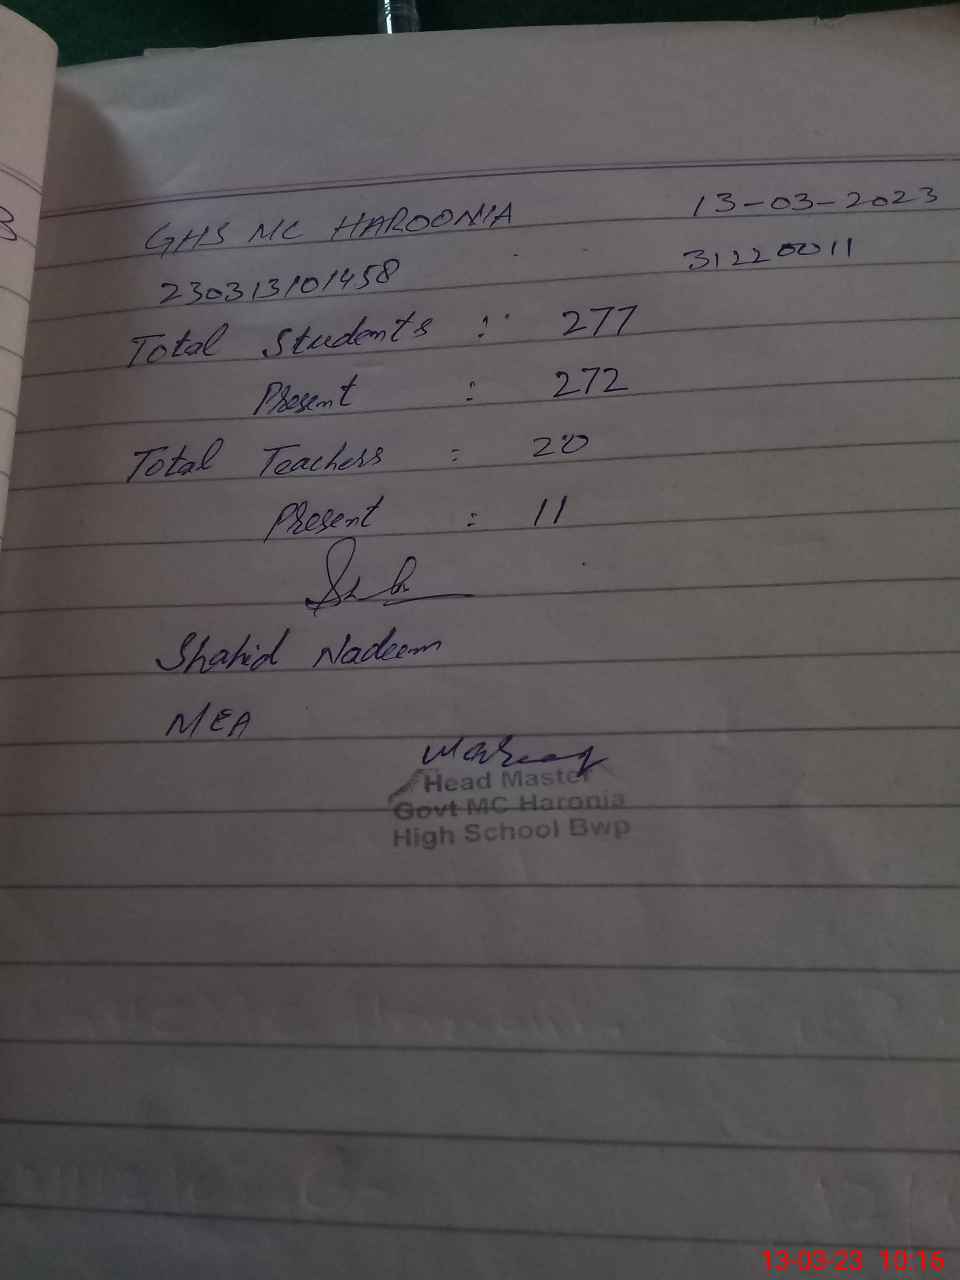 GHS MC HAROONIA 13-03-2023
230313101458 31220011
Total Students : 277
Present : 272
Total Teachers : 20
Present : 11
Shahid Nadeem
MEA
Head Master
Govt MC Haronia
High School Bwp
13-03-23 10:16